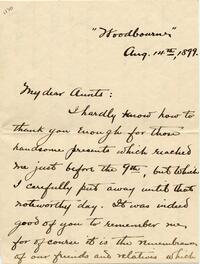 "Woodbourne"
Aug. 14th, 1899.
My dear Aunts:
I hardly know how to
thank you enough for those
handsome presents which reached
me just before the 9th, but which
I carefully put away until that
noteworthy day. It was indeed
good of you to remember me,
for of course it is the remembrance
of our friends and relatives which